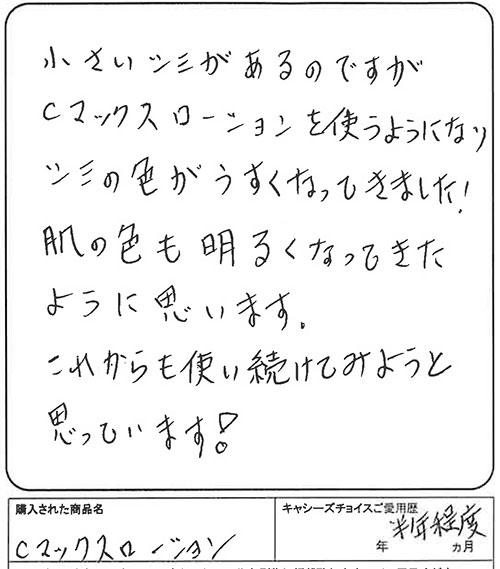 小さいシミがあるのですが
Cマックスローションを使うようになり
シミの色がうすくなってきました!
肌の色も明るくなってきた
ように思います。
これからも使い続けてみようと
思っています!
購入された商品名
キャシーズチョイスご愛用歴
Cマックスローション
半年程度
年 カ月